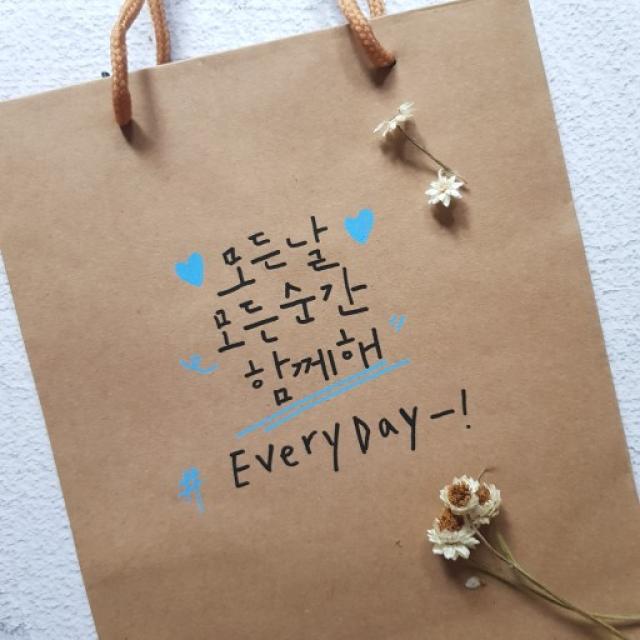 모든날
모든순간
함께해
# EveryDay-!